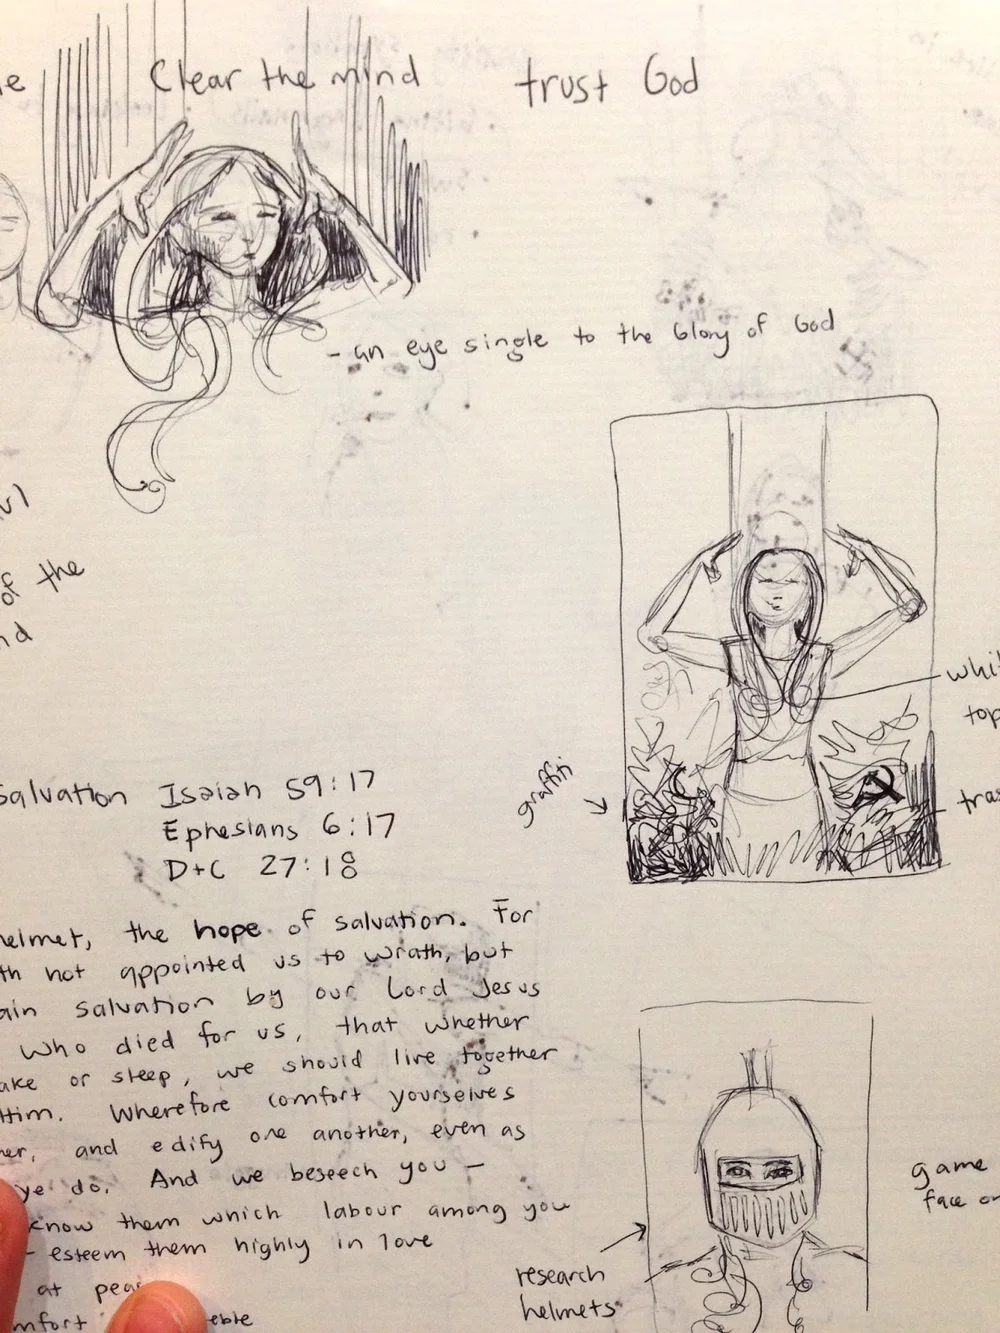 Clear the mind
trust God
- an eye single to the Glory of God
of the
graffiti
Salvation Isaiah 59:17
Ephesians 6:17
D+C 27:18
helmet, the hope of salvation. For
th not appointed us to wrath, but
ain salvation by our Lord Jesus
who died for us, that whether
ake or sleep, we should live together
Him. Wherefore comfort yourselves
her, and edify one another, even as
ye do. And we beseech you -
know them which labour among you
- esteem them highly in love
at peac
mfort eeble
game
face on
research
helmets